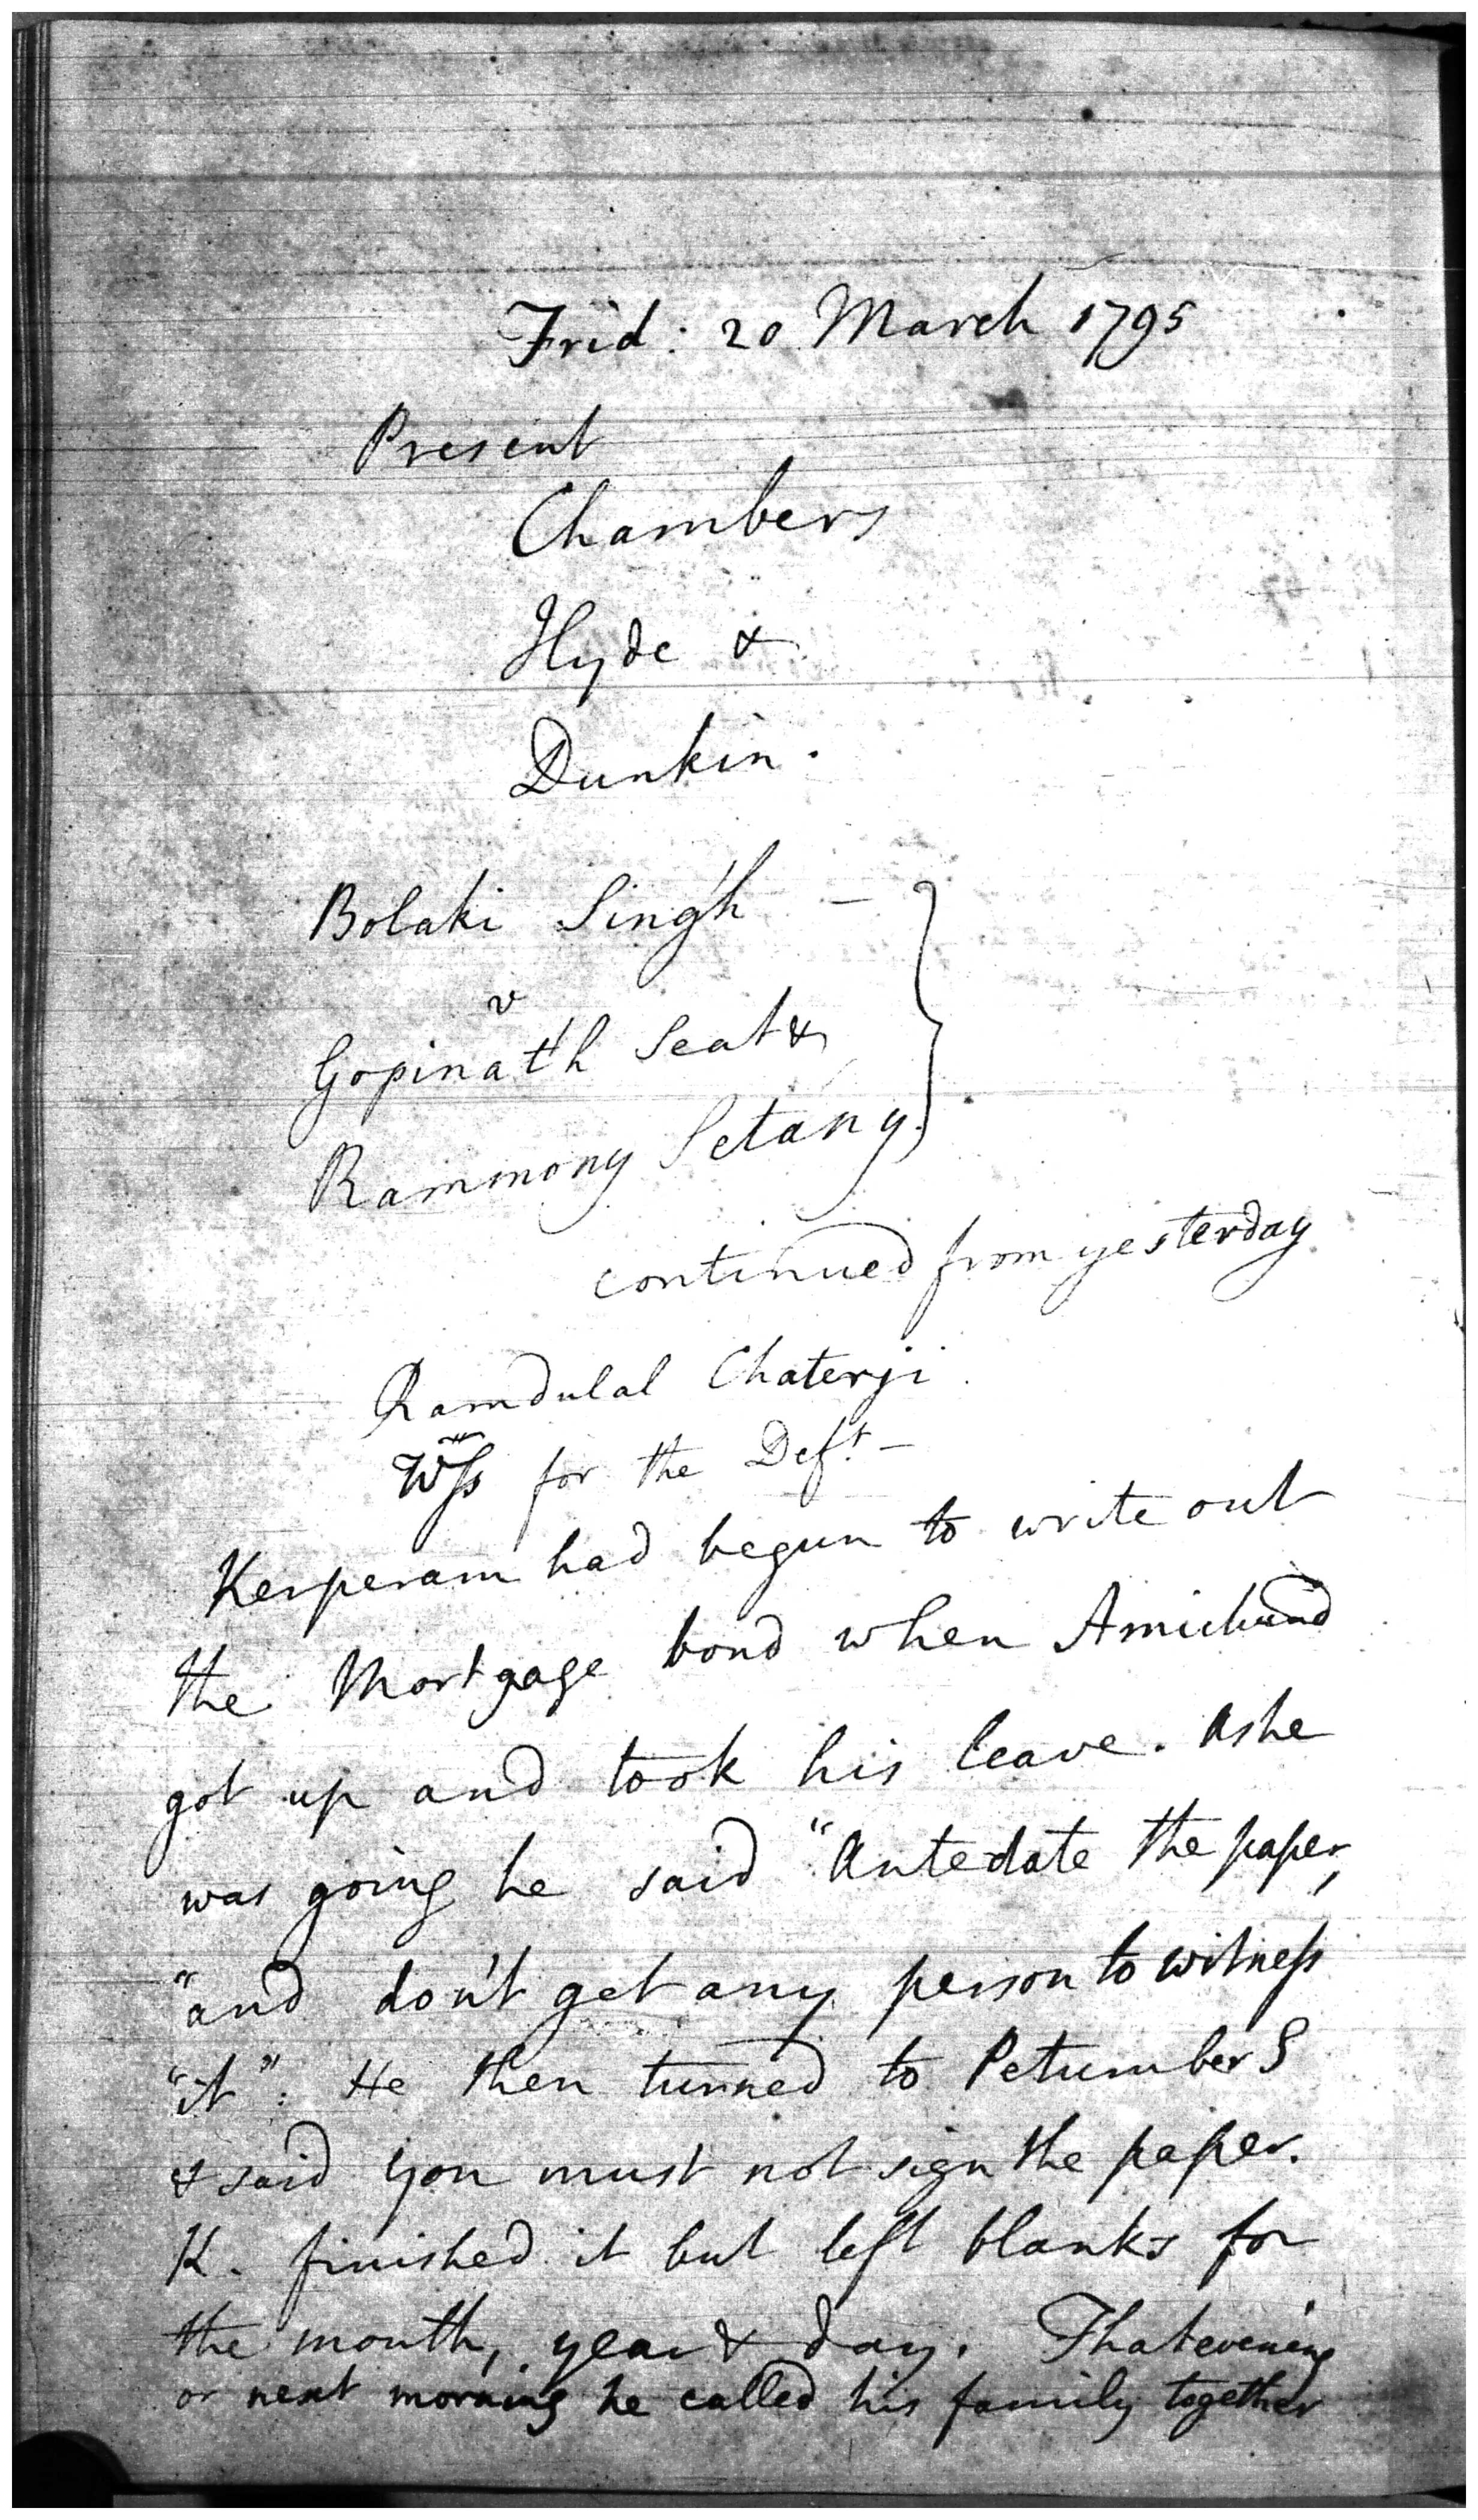 Frid: 20 March 1795
Present
Chambers
Hyde &
Dunkin.
Bolaki Singh –
v
Gopinath Seat &
Rammony Setany.
continued from yesterday
Ramdulal Chaterji.
Wss for the Deft –
Kerperam had begun to write out
the Mortgage bond when Amichund
got up and took his leave. As he
was going he said "Antedate the paper,
"and don't get any person to witness
"it". He then turned to Petumber S
& said you must not sign the paper.
K. finished it but left blanks for
the month, year & day. That evening
or next morning he called his family together